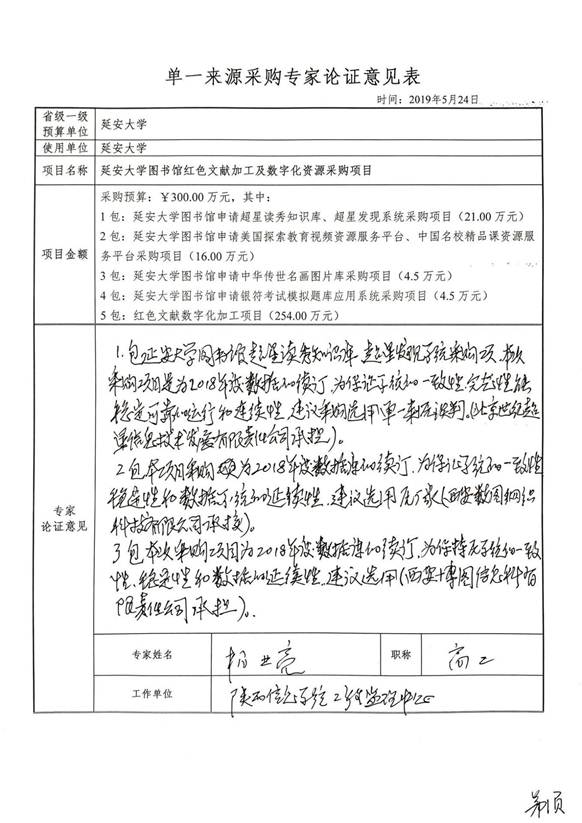 单一来源采购专家论证意见表
时间：2019年5月24日
省级一级预算单位 延安大学
使用单位 延安大学
项目名称 延安大学图书馆红色文献加工及数字化资源采购项目
项目金额
采购预算：￥300.00万元，其中：
1包：延安大学图书馆申请超星读秀知识库、超星发现系统采购项目（21.00万元）
2包：延安大学图书馆申请美国探索教育视频资源服务平台、中国名校精品课资源服
务平台采购项目（16.00万元）
3包：延安大学图书馆申请中华传世名画图片库采购项目（4.5万元）
4包：延安大学图书馆申请银符考试模拟题库应用系统采购项目（4.5万元）
5包：红色文献数字化加工项目（254.00万元）
专家论证意见
1.包延安大学图书馆超星读秀知识库 超星发现系统采购项，本次
采购项目是为2018年度数据的续订，为保证系统的一致性、完整性能
稳定可靠的运行和连续性，建议采购选用单一来源谈判。（北京世纪超
星信息技术发展有限责任公司承担）。
2包 本项目采购项为2018年度数据库的续订，为保证系统的一致性
稳定性和数据系统的延续性，建议选用原厂家（西安数图网络
科技有限公司承接）。
3包 本次采购项目为2018年度数据库的续订，为保持系统的一致
性、稳定性和数据的延续性，建议选用（西安博图信息科有
限责任公司承担）。
专家姓名 亮 职称 高工
工作单位 陕西信息系统工程监理中心
第1页